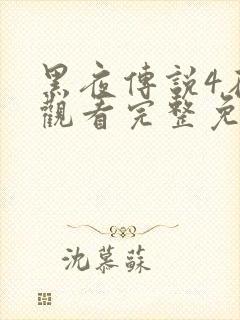 黑夜傳説4
觀看完整免
沈慕蘇